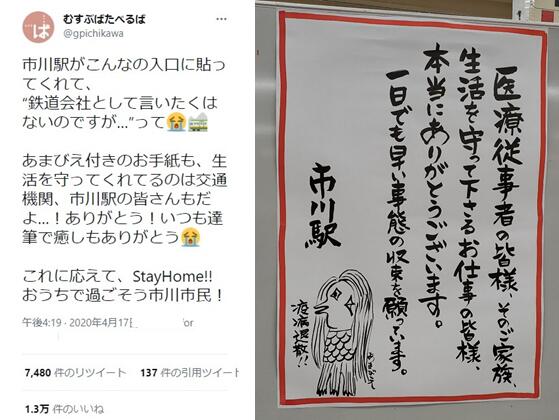 むすぶばたべるば
@gpichikawa
市川駅がこんなの入口に貼
ってくれて、
“鉄道会社として言いたくは
ないのですが...”って😭🚞
あまびえ付きのお手紙も、生
活を守ってくれてるのは交通
機関、市川駅の皆さんもだ
よ...！ありがとう！いつも達
筆で癒しもありがとう😭
これに応えて、StayHome!!
おうちで過ごそう市川市民！
午後4:19 · 2020年4月17日
or
7,480 件のリツイート 137 件の引用ツイート
1.3万 件のいいね
ば
医療従事者の皆様、そのご家族、
生活を守って下さるお仕事の皆様、
本当にありがとうございます。
一日でも早い事態の収束を願っています。
市川駅
疫病退散!!
あまびえ